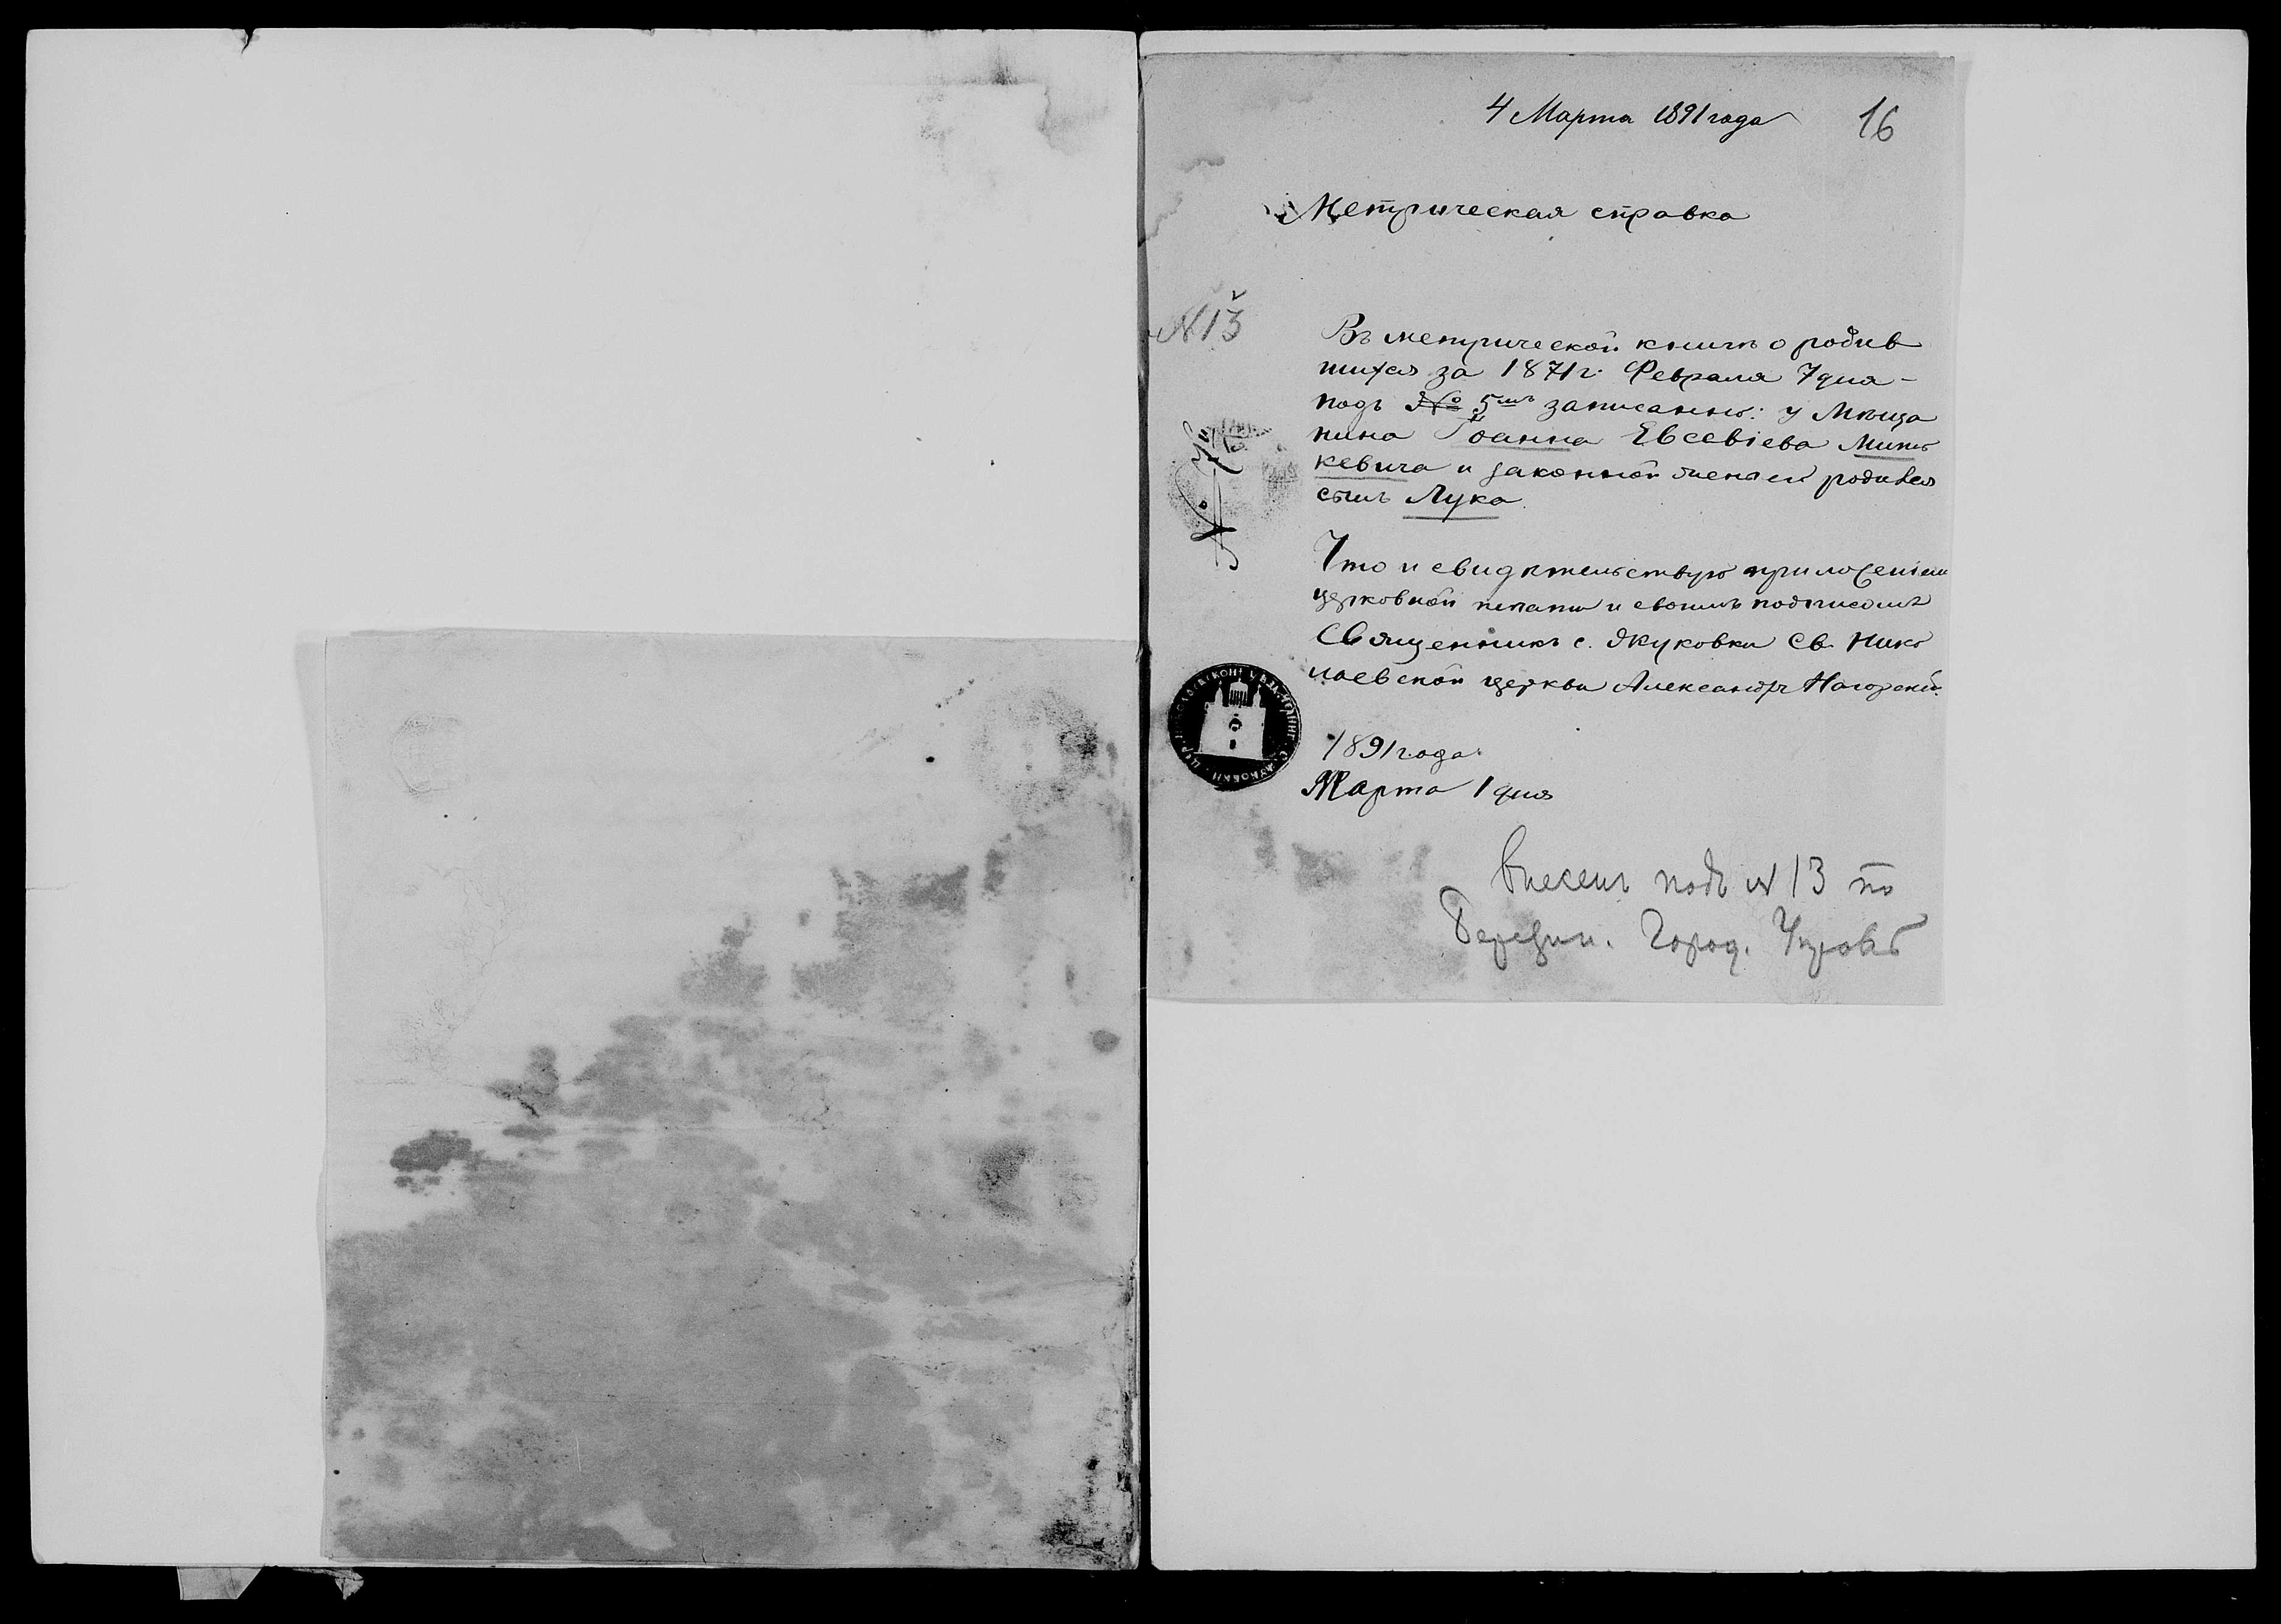 4 Марта 1891 года
16
Метрическая справка
N 13
Въ метрической книгѣ о родив
шихся за 1871 г. Февраля 7 дня –
подъ № 5мъ записанно: у Мѣща
нина Іоанна Евсевіева Минь
кевича и законной жены его родился
сынъ Лука.
Что и свидѣтельствую приложеніемъ
церковной печати и своимъ подписомъ
Священникъ с. Жуковки Св. Нико
лаевской церкви Александръ Нагорскій.
1891 года
Марта 1 дня
Внесенъ подъ N 13 по
Березин. Город. Управѣ